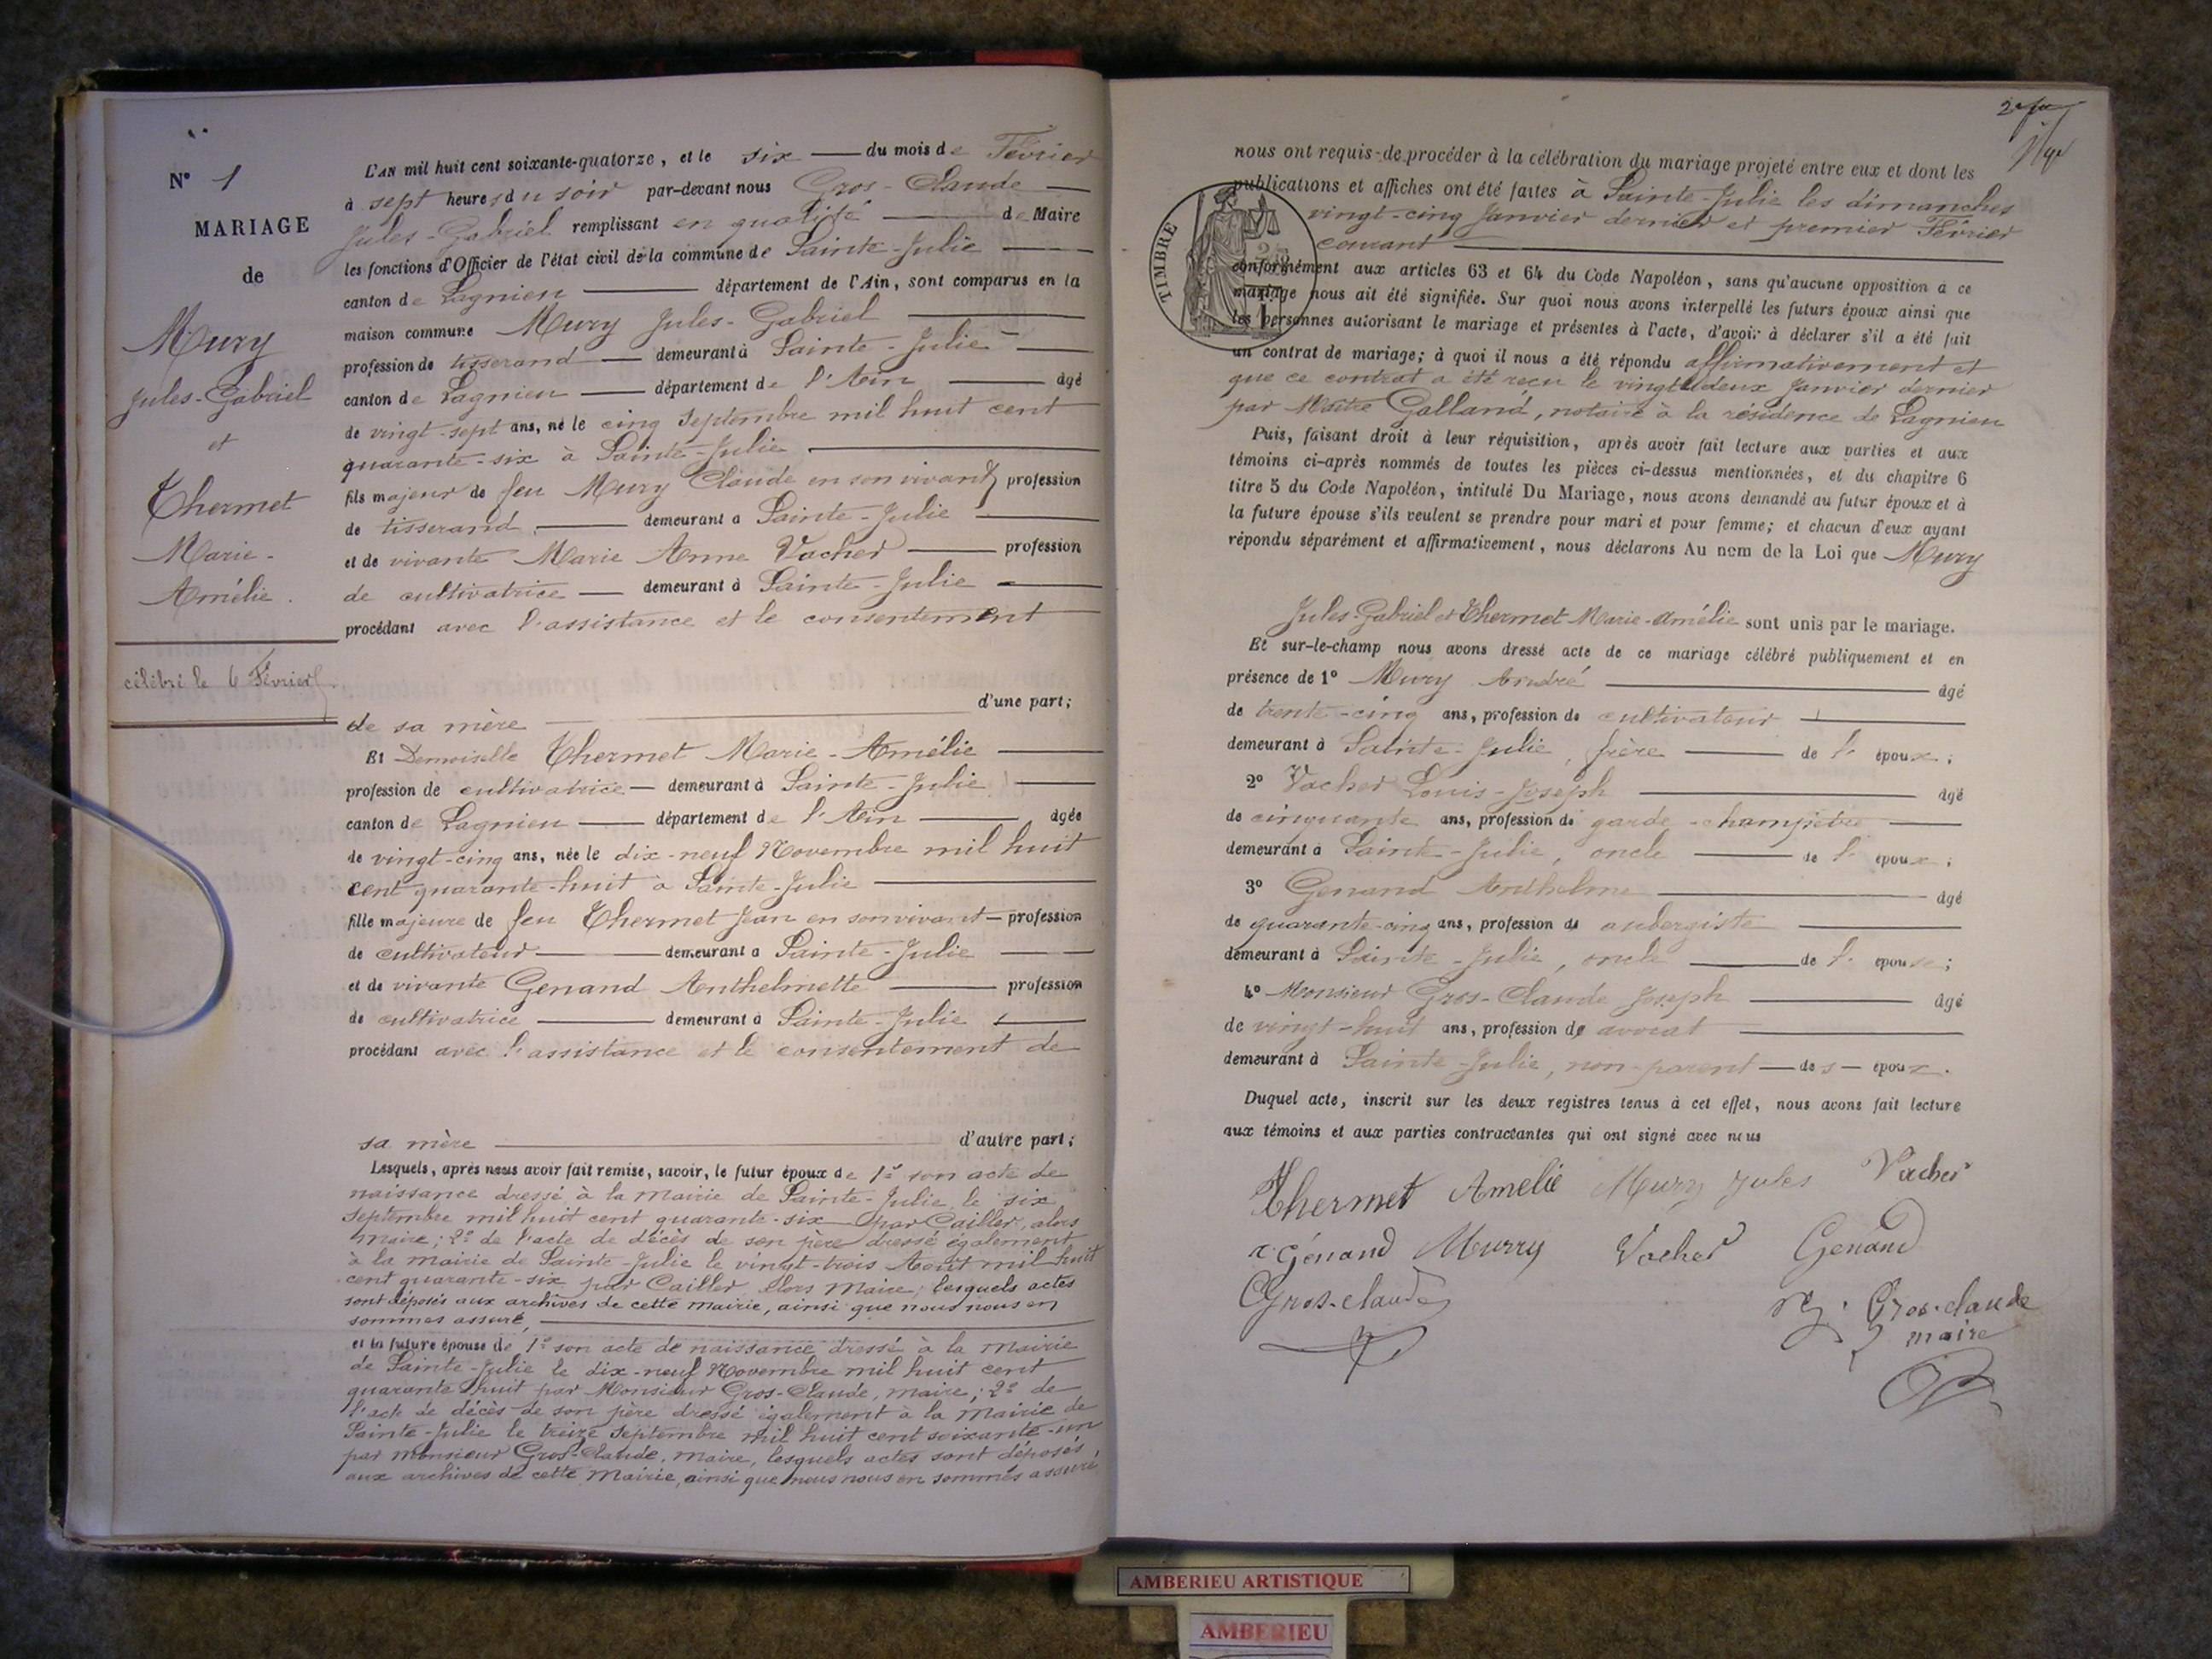 N° 1
MARIAGE
de
Mury
Jules-Gabriel
et
Thermet
Marie-
Amélie.
célébré le 6 Février
L'AN mil huit cent soixante-quatorze, et le six du mois de Février
à sept heures du soir par-devant nous Gros-Claude
Jules-Gabriel remplissant en qualité de Maire
les fonctions d'Officier de l'état civil de la commune de Sainte-Julie
canton de Lagnieu département de l'Ain, sont comparus en la
maison commune Mury Jules-Gabriel
profession de tisserand demeurant à Sainte-Julie
canton de Lagnieu département de l'Ain âgé
de vingt-sept ans, né le cinq Septembre mil huit cent
quarante-six à Sainte-Julie
fils majeur de feu Mury Claude en son vivant profession
de tisserand demeurant à Sainte-Julie
et de vivante Marie Anne Vacher profession
de cultivatrice demeurant à Sainte-Julie
procédant avec l'assistance et le consentement
de sa mère d'une part;
Et Demoiselle Thermet Marie-Amélie
profession de cultivatrice demeurant à Sainte-Julie
canton de Lagnieu département de l'Ain âgée
de vingt-cinq ans, née le dix-neuf Novembre mil huit
cent quarante-huit à Sainte-Julie
fille majeure de feu Thermet Jean en son vivant profession
de cultivateur demeurant à Sainte-Julie
et de vivante Genand Anthelmette profession
de cultivatrice demeurant à Sainte-Julie
procédant avec l'assistance et le consentement de
sa mère d'autre part;
Lesquels, après nous avoir fait remise, savoir, le futur époux de 1° son acte de
naissance dressé à la mairie de Sainte-Julie le six
Septembre mil huit cent quarante-six par Cailler, alors
maire; 2° de l'acte de décès de son père dressé également
à la mairie de Sainte-Julie le vingt-trois Août mil huit
cent quarante-six par Cailler alors Maire, lesquels actes
sont déposés aux archives de cette mairie, ainsi que nous nous en
sommes assuré,
et la future épouse de 1° son acte de naissance dressé à la mairie
de Sainte-Julie le dix-neuf Novembre mil huit cent
quarante huit par Monsieur Gros-Claude, maire; 2° de
l'acte de décès de son père dressé également à la Mairie de
Sainte-Julie le treize Septembre mil huit cent soixante-un
par Monsieur Gros-Claude, Maire, lesquels actes sont déposés,
aux archives de cette Mairie, ainsi que nous nous en sommes assuré
nous ont requis de procéder à la célébration du mariage projeté entre eux et dont les
publications et affiches ont été faites à Sainte-Julie les dimanches
vingt-cinq Janvier dernier et premier Février
courant
TIMBRE
conformément aux articles 63 et 64 du Code Napoléon, sans qu'aucune opposition à ce
mariage nous ait été signifiée. Sur quoi nous avons interpellé les futurs époux ainsi que
les personnes autorisant le mariage et présentes à l'acte, d'avoir à déclarer s'il a été fait
un contrat de mariage; à quoi il nous a été répondu affirmativement et
que ce contrat a été reçu le vingt deux Janvier dernier
par Maître Galland, notaire à la résidence de Lagnieu
Puis, faisant droit à leur réquisition, après avoir fait lecture aux parties et aux
témoins ci-après nommés de toutes les pièces ci-dessus mentionnées, et du chapitre 6
titre 5 du Code Napoléon, intitulé Du Mariage, nous avons demandé au futur époux et à
la future épouse s'ils veulent se prendre pour mari et pour femme; et chacun d'eux ayant
répondu séparément et affirmativement, nous déclarons Au nom de la Loi que Mury
Jules-Gabriel et Thermet Marie-Amélie sont unis par le mariage.
Et sur-le-champ nous avons dressé acte de ce mariage célébré publiquement et en
présence de 1° Mury André âgé
de trente-cinq ans, profession de cultivateur
demeurant à Sainte-Julie, frère de l'époux;
2° Vacher Louis-Joseph âgé
de cinquante ans, profession de garde-champêtre
demeurant à Sainte-Julie, oncle de l'époux;
3° Genand Anthelme âgé
de quarante-cinq ans, profession de aubergiste
demeurant à Sainte-Julie, oncle de l'épouse;
4° Monsieur Gros-Claude Joseph âgé
de vingt-huit ans, profession de avocat
demeurant à Sainte-Julie, non-parent des époux.
Duquel acte, inscrit sur les deux registres tenus à cet effet, nous avons fait lecture
aux témoins et aux parties contractantes qui ont signé avec nous
Thermet Amelie Mury Jules Vacher
Génand Murry Vacher Genand
Gros-claude
Gros-claude
maire
AMBERIEU ARTISTIQUE
AMBERIEU